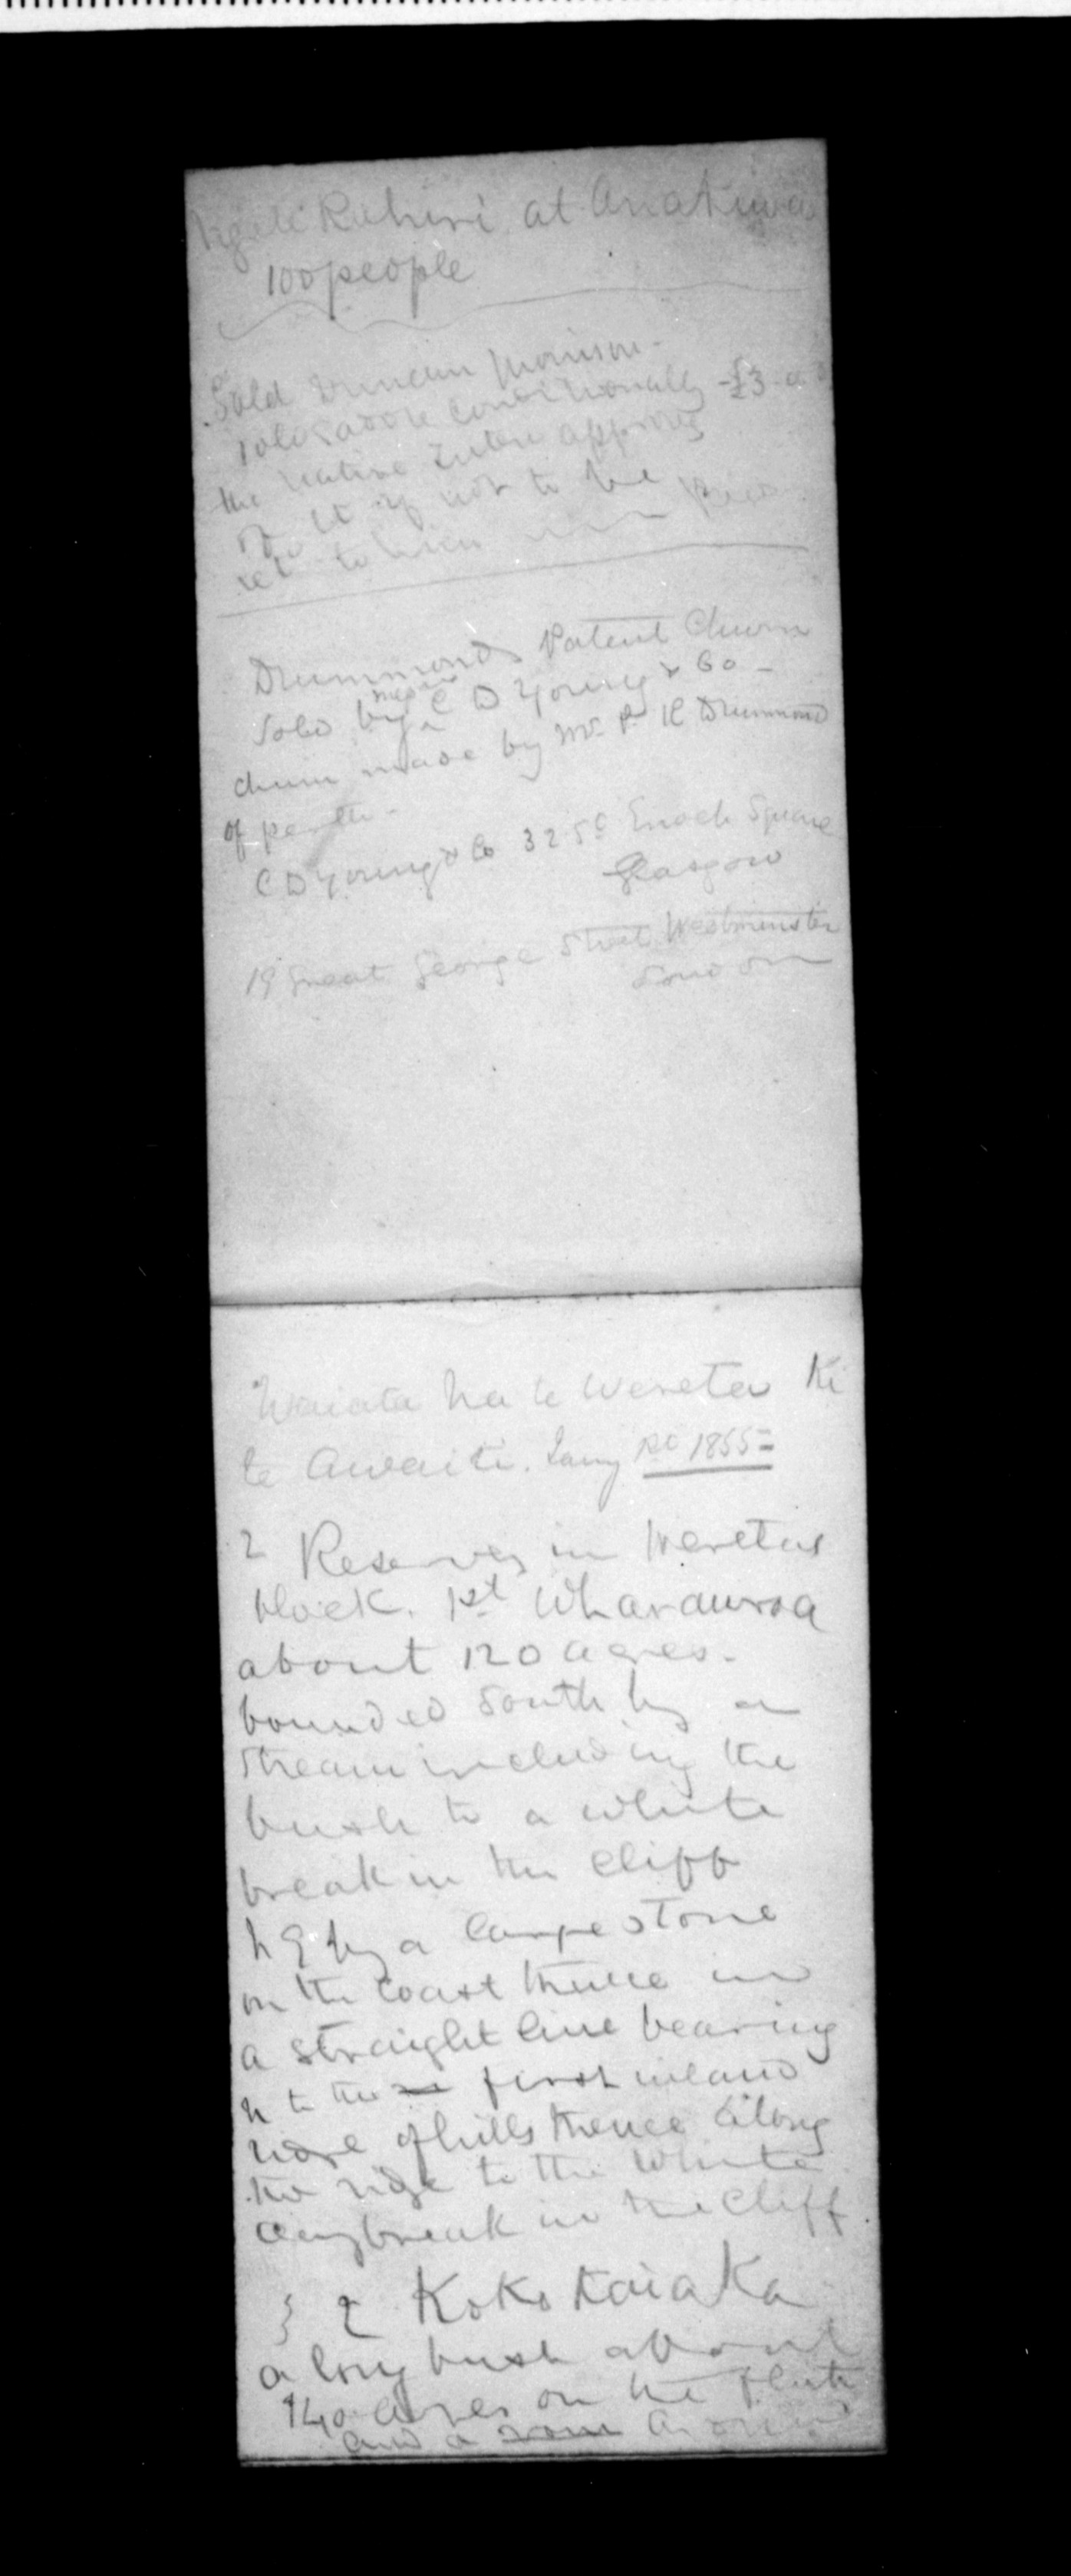 Ngati Rahiri at Anakiwa
100 people
Sold Duncan Morrison -
1 old saddle conditionally - £3 -
the native Intere approves
of it if not to be
ret to him
Drummonds Patent Churn
Sold by Messrs C D Young & Co -
churn made by Mr P R Drummond
of perth -
C D Young & Co 32 St Enoch Square
Glasgow
19 Great George Street Westminster
London
Waiata na te Wereta Ki
te Awaiti. Jany 1st 1855 =
2 Reserves in Weretas
block. 1st Wharauroa
about 120 acres -
bounded South by a
Stream including the
bush to a white
break in the cliff
N E by a large stone
on the coast thence in
a straight line bearing
N to the first inland
ridge of hills thence along
the ridge to the White
clay break in the Cliff.
2 Kokotaiaka
a long bush about
140 acres on the flat
and a